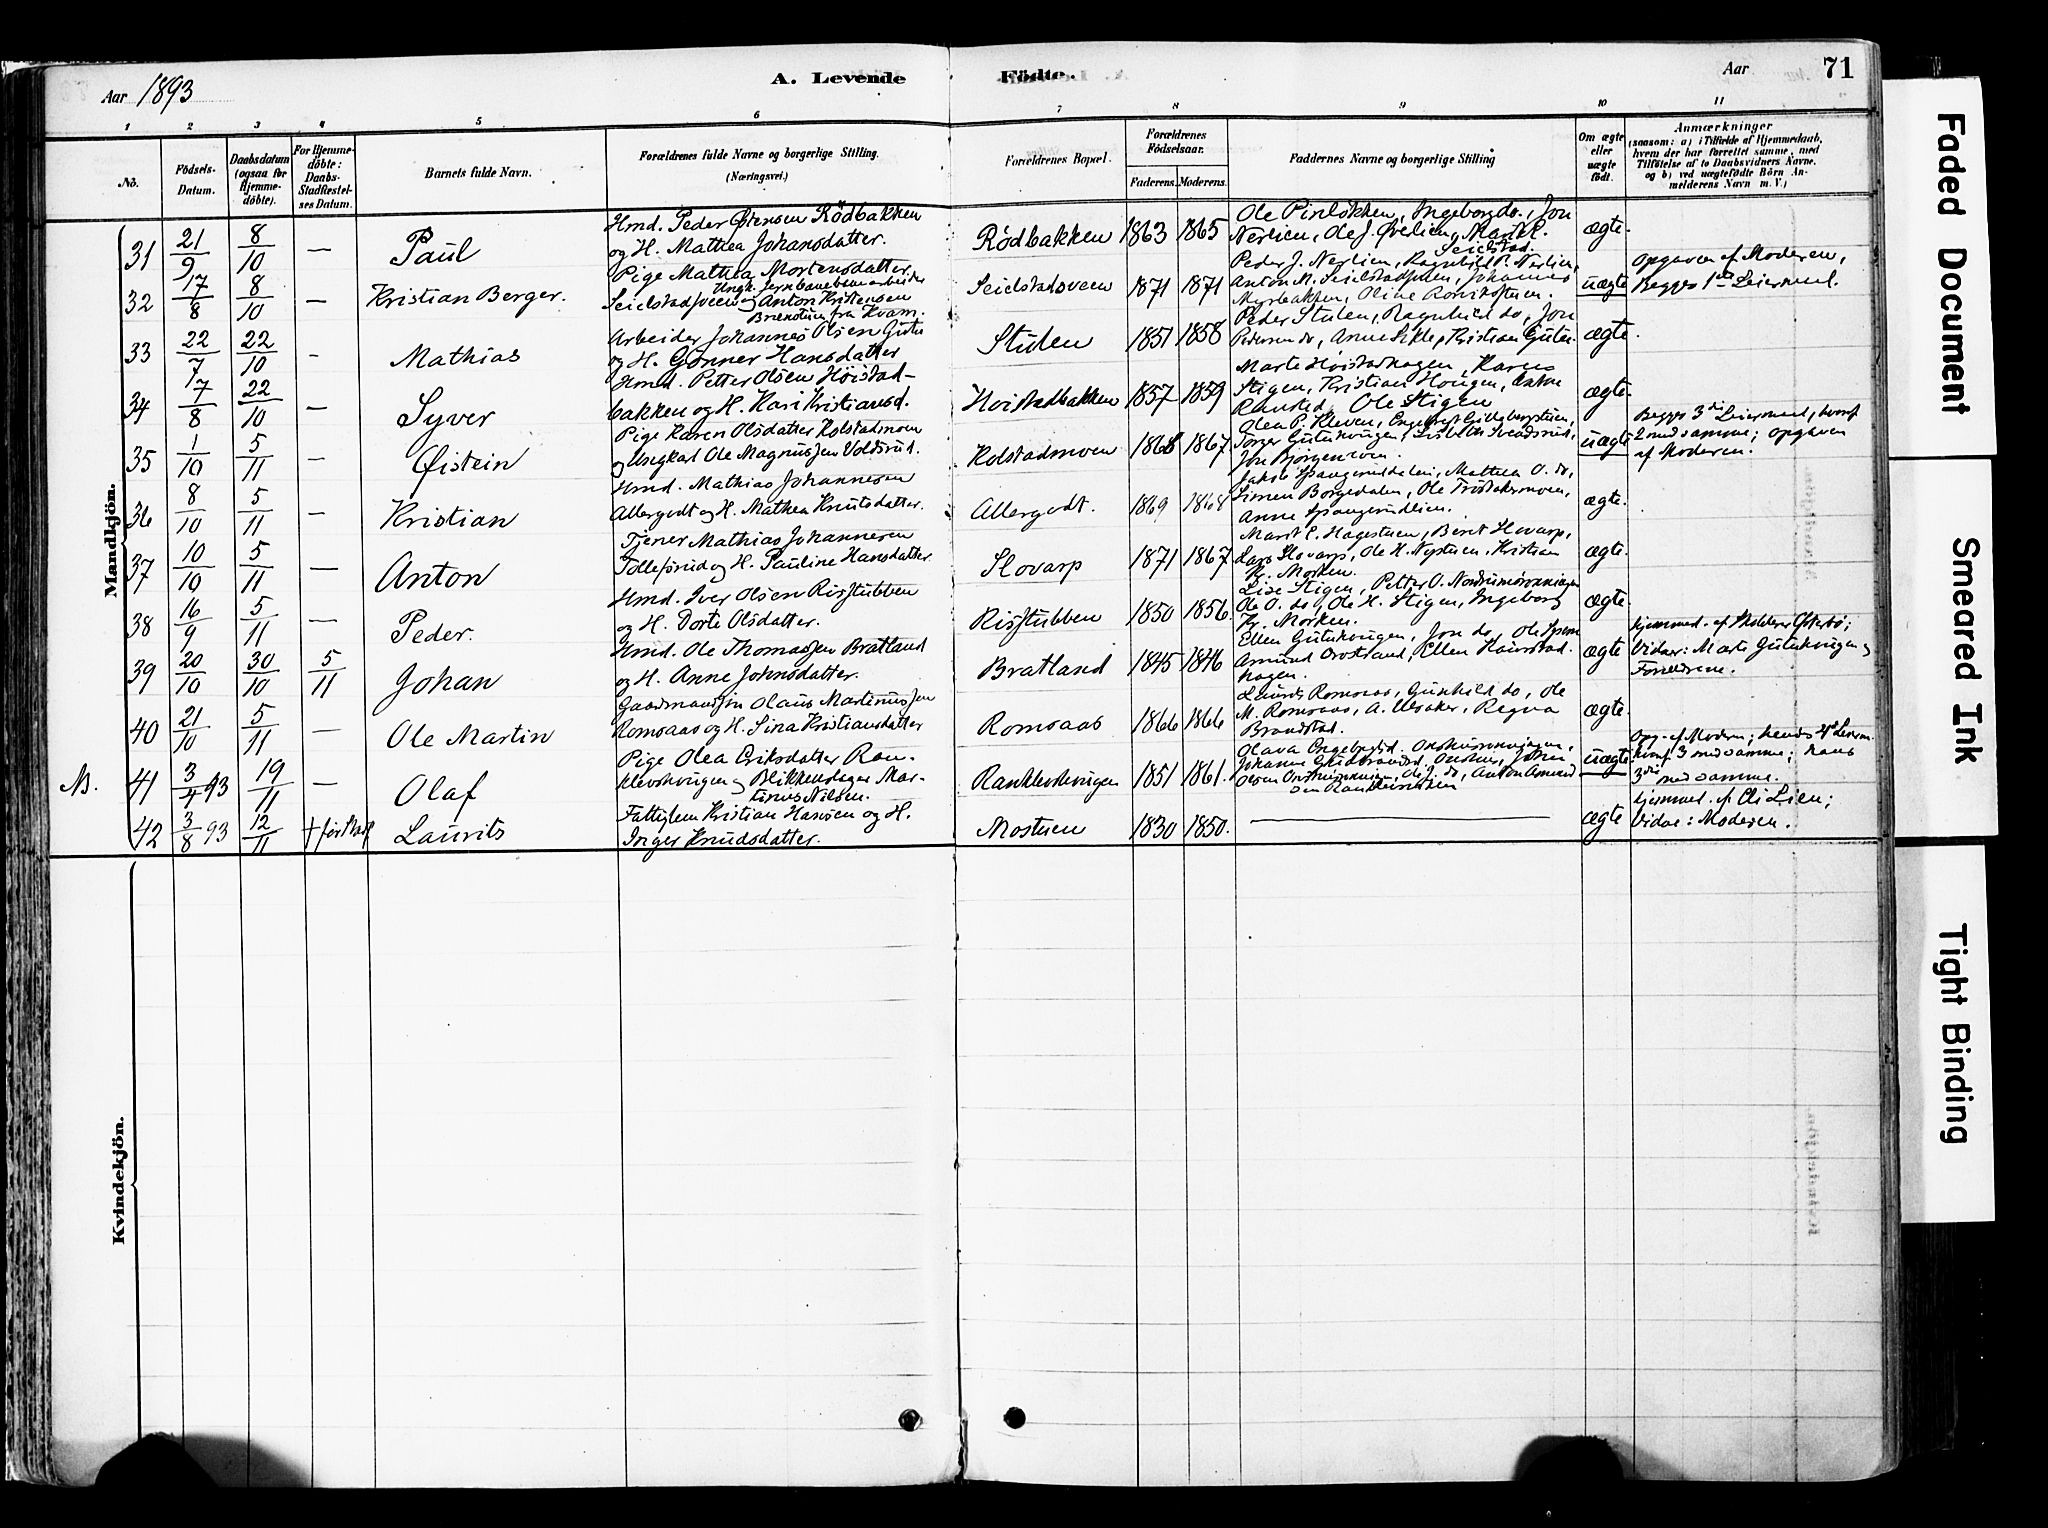 Aar 1893
A. Levende
Födte.
Aar
71
1 2 3 4 5 6 7 8 9 10 11
No.
Födsels-Datum.
Daabsdatum (ogsaa for Hjemmedöbte).
For Hjemmedöbte: Daabs-Stadfæstelses Datum.
Barnets fulde Navn.
Forældrenes fulde Navne og borgerlige Stilling. (Næringsvei.)
Forældrenes Bopæl.
Forældrenes Födselsaar.
Faderens. Moderens.
Faddernes Navne og borgerlige Stilling
Om ægte eller uægte født.
Anmærkninger
(saasom: a) i Tilfælde af Hjemmedaab, hvem der har forrettet samme, med Tilföielse af to Daabsvidners Navne, og b) ved uægtefödte Börn Anmelderens Navn m. V.)
Mandkjön.
31 21/9 8/10 — Paul
Hmd. Peder Østensen Rödbakken
og H. Mathea Johansdatter.
Rödbakken 1863 1865
Ole Pinlökken, Ingeborg do., Jon
Nerlien, Ole J. Øvelien, Marit P.
Seielstad.
ægte.
32 17/8 8/10 — Kristian Berger.
Pige Mathea Mortensdatter
Seielstadsveen og Ungk. Jernbanearbeider Anton Kristensen
fra Kvam.
Seielstadsveen 1871 1871
Peder J. Nerlien, Ragnhild P. Nerlien,
Anton M. Seielstadsveen, Johannes
Myrbakken, Oline
uægte
Opgaven af Moderen,
Begges 1ste Leiermaal.
33 22/7 22/10 - Mathias
Arbeider Johannes Olsen Gutu
og H. Gønner Hansdatter
Stulen 1851 1858
Peder Stulen, Ragnhild do, Jon
Pedersen do, Anne Sikle, Kristian Gutu.
ægte.
34 7/8 22/10 — Syver
Hmd. Petter Olsen Høistad-
bakken og H. Kari Kristiansd.
Hoistadbakken 1857 1859
Marte Høistadhagen, Karen
Stigen, Kristian Hougen, Anton
Ole Stigen
ægte.
35 1/10 5/11 — Øistein
Pige Karen Olsdatter Kolstadmoen
og Ungkal Ole Magnussen Voldsrud.
Kolstadmoen 1868 1867
Olea P. Kleven,
uægte
Begges 3die Leiermaal, hvoraf
2 med samme; opgaven
af Moderen.
36 8/10 5/11 — Kristian
Hmd. Mathias Johannesen
Allergodt og H. Mathea Knutsdatter.
Allergodt. 1869 1868
Jakob Spangruddalen, Mathea O. do,
Simen Borgedalen, Ole
Anne
ægte.
37 10/10 5/11 — Anton
Tjener Mathias Johannesen
Tollefsrud og H. Pauline Hansdatter.
Slovarp 1871 1867
Marit E. Hagestuen, Beret Slovarp,
Lars Slovarp, Ole H. Nystuen, Kristian
Kr. Morken.
ægte.
38 16/9 5/11 — Peder.
Hmd. Iver Olsen Risstubben
og H. Dorte Olsdatter.
Risstubben 1850 1856.
Lise Stigen, Petter O.
Ole O. do, Ole H. Stigen, Ingeborg
Kr. Morken.
ægte.
39 20/10 30/10 5/11 Johan
Hmd. Ole Thomassen Bratland
og H. Anne Johnsdatter.
Bratland 1845 1846
Ellen Gutuhougen, Jon do, Ole
Amund
hagen.
ægte
hjemmed. af Østerbø;
Vidner: Marte Gutuhougen og
Forældrene.
40 21/10 5/11 — Ole Martin
Gaardmandssøn Olaus Martinussen
Romsaas og H. Sina Kristiansdatter
Romsaas 1866 1866
Laurits Romsaas, Gunhild do, Ole
M. Romsaas, A. Ulsaker, Regna
Brandstad.
ægte.
NB. 41 3/4 93 19/11 — Olaf
Pige Olea Eriksdatter Ran-
klevshougen og Blikkenslager Mar-
tinus Nilsen.
Ranklevshougen 1851 1861.
Olava
Johanne
uægte
Opg. af Modern; hendes 4de Leierm.
hvoraf 3 med samme; hans
3die med samme.
42 3/8 93 12/11 Laurits
Fattiglem Kristian Hansen og H.
Inger Knudsdatter.
Mostuen 1830 1850.
ægte
hjemmed. af Eli Lien;
Vidne: Moderen.
Kvindekjön.
Faded Document
Smeared Ink
Tight Binding